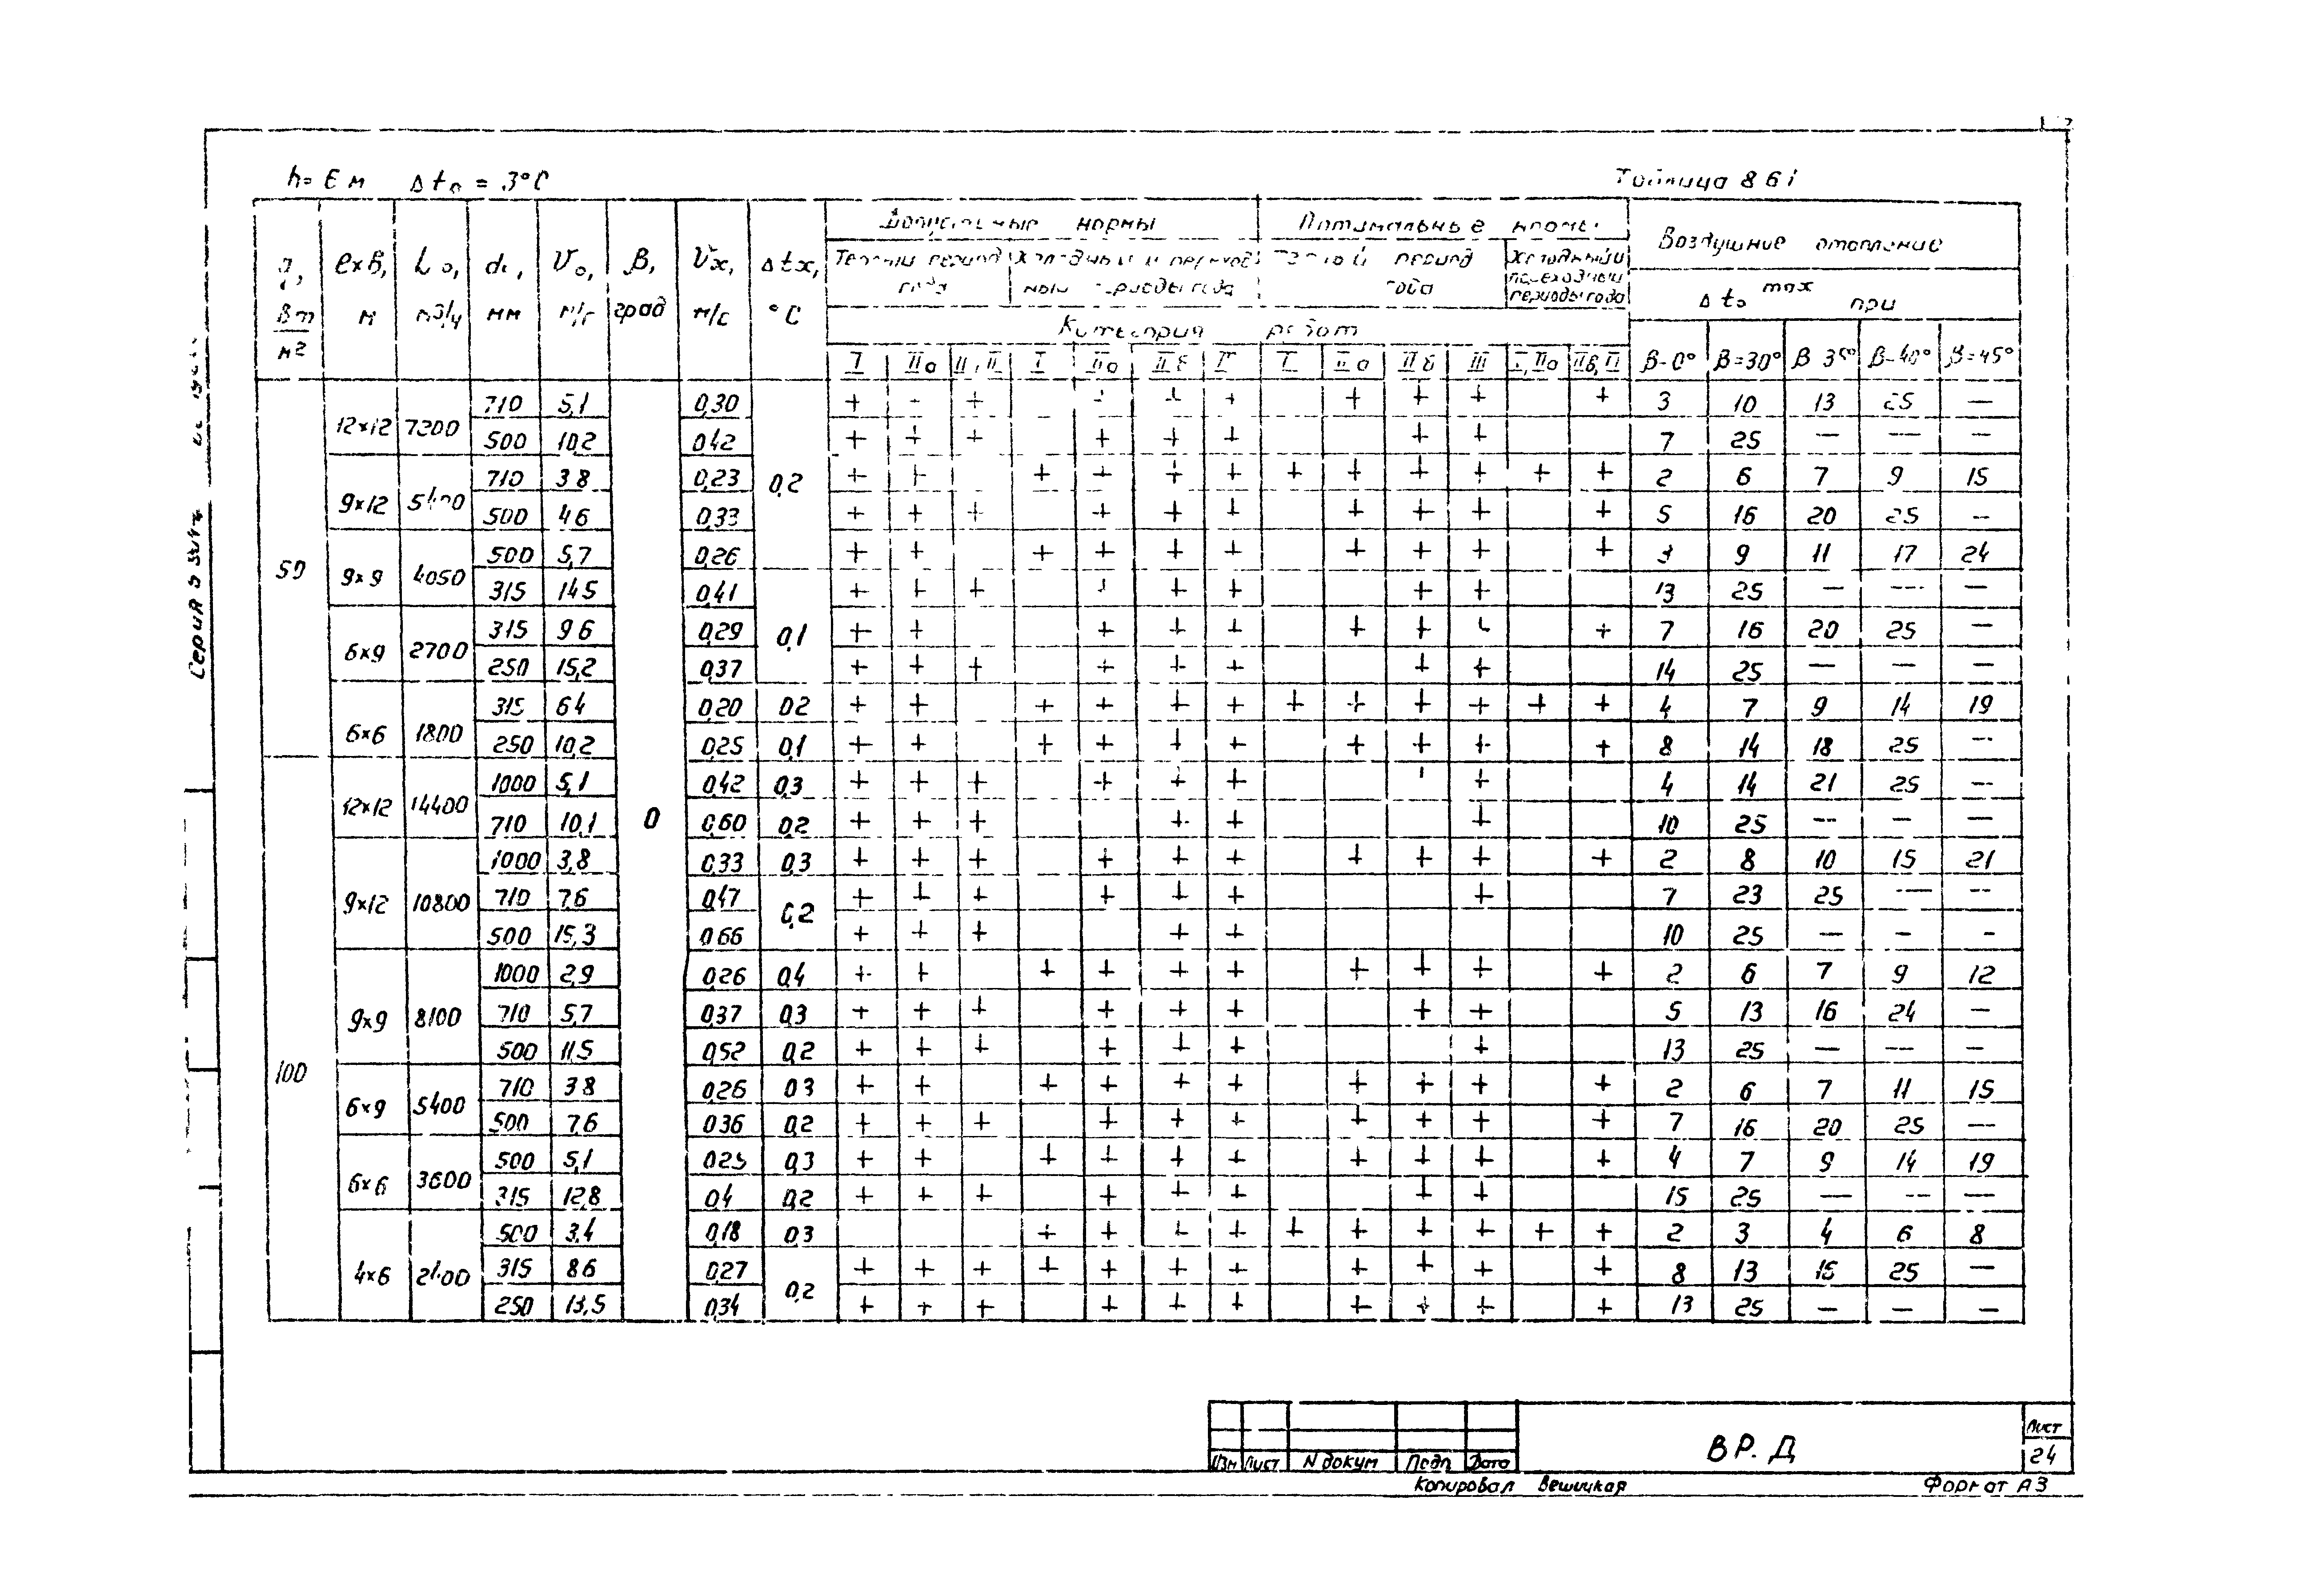 h= 6 м Δt₀ = 3°C
Таблица 8 6 1
q, Вт/м² ℓ×B, м L₀, м3/ч d₀, мм V₀, м/с β, град Vx, м/с Δtx, °C
Допустимые нормы Оптимальные нормы Воздушние отопление
Теплый период года Холодный и переход ный периоды года Теплый период года Холодный и переходный периоды года
Δt₀ max при
Категория работ
I IIa I IIa IIб I IIa IIб III I, IIa β-0° β=30° β 35° β-40° β=45°
50 12×12 7200 710 5,1 0 0,30 0,2 + - + + + + + + + + 3 10 13 25 —
500 10,2 0,42 + + + + + + + + 7 25 — — —
9×12 5400 710 3 8 0,23 + + + + + + + + + + + + 2 6 7 9 15
500 4 6 0,33 + + + + + + + + + + 5 16 20 25 —
9×9 4050 500 5,7 0,26 + + + + + + + + + + 3 9 11 17 24
315 14 5 0,41 0,1 + + + + + + + + 13 25 — — —
6×9 2700 315 9 6 0,29 + + + + + + + + + 7 16 20 25 —
250 15,2 0,37 + + + + + + + + 14 25 — — —
6×6 1800 315 6 4 0,20 0 2 + + + + + + + + + + + + 4 7 9 14 19
250 10,2 0,25 0,1 + + + + + + + + + + 8 14 18 25 —
100 12×12 14400 1000 5,1 0,42 0,3 + + + + + + + 4 14 21 25 —
710 10,1 0,60 0,2 + + + + + + 10 25 — — —
9×12 10800 1000 3,8 0,33 0,3 + + + + + + + + + + 2 8 10 15 21
710 7,6 0,47 0,2 + + + + + + + 7 23 25 — —
500 15,3 0 66 + + + + + + 10 25 — — -
9×9 8100 1000 2,9 0,26 0,4 + + + + + + + + + + 2 6 7 9 12
710 5,7 0,37 0,3 + + + + + + + + 5 13 16 24 —
500 11,5 0,52 0,2 + + + + + + + 13 25 — — —
6×9 5400 710 3 8 0,26 0 3 + + + + + + + + + + 2 6 7 11 15
500 7,6 0 36 0,2 + + + + + + + + + + 7 16 20 25 —
6×6 3600 500 5,1 0 25 0,3 + + + + + + + + + + 4 7 9 14 19
315 12,8 0,4 0,2 + + + + + + + + 15 25 — — —
4×6 2400 500 3,4 0,18 0 3 + + + + + + + + + + 2 3 4 6 8
315 8 6 0,27 0,2 + + + + + + + + + + + 8 13 16 25 —
250 13,5 0,34 + + + + + + + + + + 13 25 — — —
Серия 5
ВР. Д
Лист
24
Изм Лист N докум Подп Дата
Копировал Вешицкая Формат А3